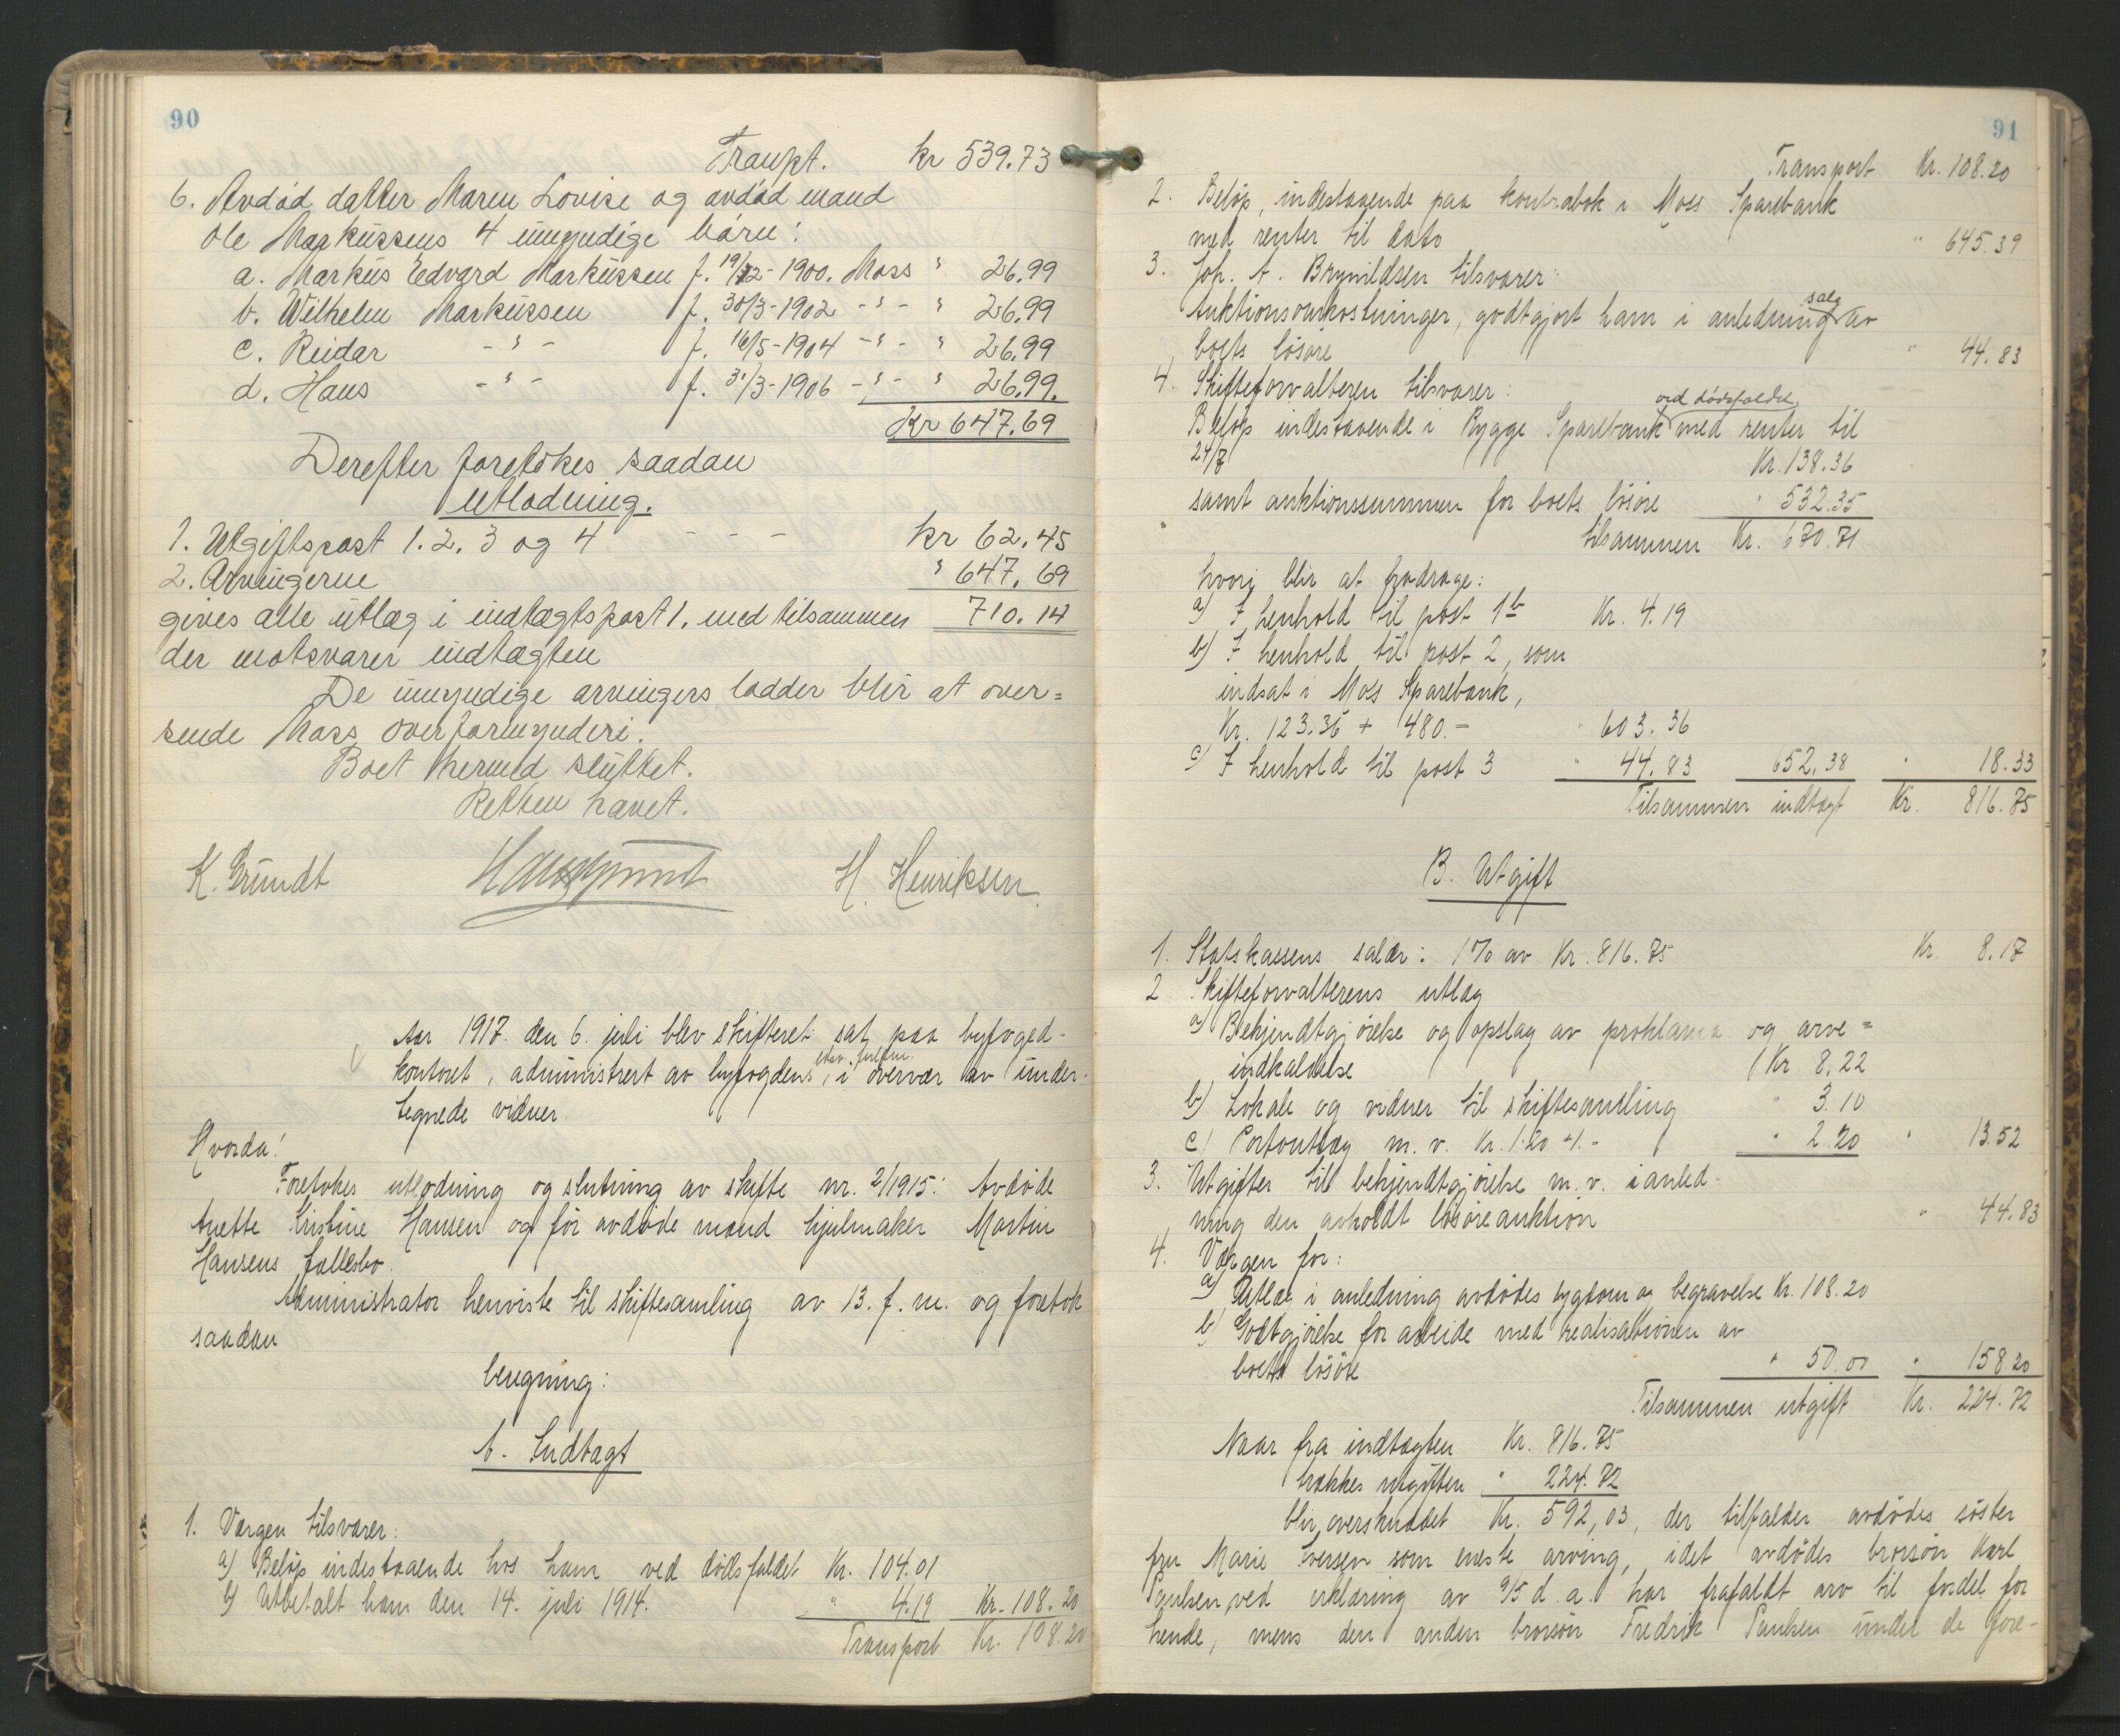 90
Transpt. kr 539.73
6. Avdød datter Maren Lovise og avdød mand
Ole Markussens 4 umyndige børn:
a. Markus Edvard Markussen f. 19/12-1900. Moss " 26.99
b. Wilhelm Markussen f. 30/3-1902 - " - " 26.99
c. Reidar - " - f. 16/5-1904 - " - " 26.99
d. Hans - " - f. 31/3-1906 - " - " 26.99.
Kr 647.69
Derefter foretokes saadan
utlodning.
1. Utgiftspost 1. 2. 3 og 4 - - - kr 62.45
2. Arvingerne " 647.69
gives alle utlæg i indtægtspost 1. med tilsammen 710.14
der motsvarer indtægten
De umyndige arvingers lodder blir at over=
sende Moss overformynderi.
Boet hermed sluttet.
Retten hævet.
K. Grundt H. Henriksen.
Aar 1917 den 6. juli blev skifteret sat paa byfoged-
kontoret, administrert av byfogdens edsv. fuldm., i overvær av under-
tegnede vidner.
Hvorda!
Foretokes utlodning og slutning av skifte nr. 2/1915: Avdøde
Anette Kristine Hansen og før avdøde mand hjulmaker Martin
Hansens fællesbo.
Administrator henviste til skiftesamling av 13. f. m. og foretok
saadan
beregning:
A. Indtægt
1. Værgen tilsvarer:
a) Beløp indestaaende hos ham ved dødsfaldet Kr. 104.01
b) Utbetalt ham den 14. juli 1914. " 4.19 Kr. 108.20
Transport Kr. 108.20
91
Transport Kr. 108.20
2. Beløp, indestaaende paa kontrabok i Moss Sparebank
med renter til dato " 645.39
3. Joh. A. Brynildsen tilsvarer:
Auktionsomkostninger, godtgjort ham i anledning salg av
boets løsøre " 44.83
4. Skifteforvalteren tilsvarer:
Beløp indestaaende i Rygge Sparebank ved dødsfaldet med renter til
24/7 Kr. 138.36
samt auktionssummen for boets løsøre " 532.35
tilsammen Kr. 670.71
hvori blir at fradrage:
a) I henhold til post 1b Kr. 4.19
b) I henhold til post 2, som
indsat i Moss Sparebank,
Kr. 123.36 + 480.- " 603.36
c) I henhold til post 3 " 44.83 652.38 " 18.33
Tilsammen indtægt Kr. 816.75
B. Utgift
1. Statskassens salær: 1% av Kr. 816.75 Kr. 8.17
2 Skifteforvalterens utlæg
a) Bekjendtgjørelse og opslag av proklama og arve=
indkaldelse Kr 8.22
b) Lokale og vidner til skiftesamling " 3.10
c) Portoutlæg m. v. Kr. 1.20 + 1.- " 2.20 " 13.52
3. Utgifter til bekjendtgjørelse m. v. i anled-
ning den avholdt løsøreauktion " 44.83
4. Værgen for:
a) Utlæg i anledning avdødes sygdom og begravelse Kr. 108.20
b) Godtgjørelse for arbeide med realisationen av
boets løsøre " 50.00 " 158.20
Tilsammen utgift Kr. 224.72
Naar fra indtægten Kr. 816.75
trækkes utgiften " 224.72
blir overskuddet Kr. 592,03, der tilfalder avdødes søster
fru Marie Iversen som eneste arving, idet avdødes brorsøn Karl
Paulsen ved erklæring av 9/5 d. a. har frafaldt arv til fordel for
hende, mens den anden brorsøn Fredrik Paulsen under de fore-